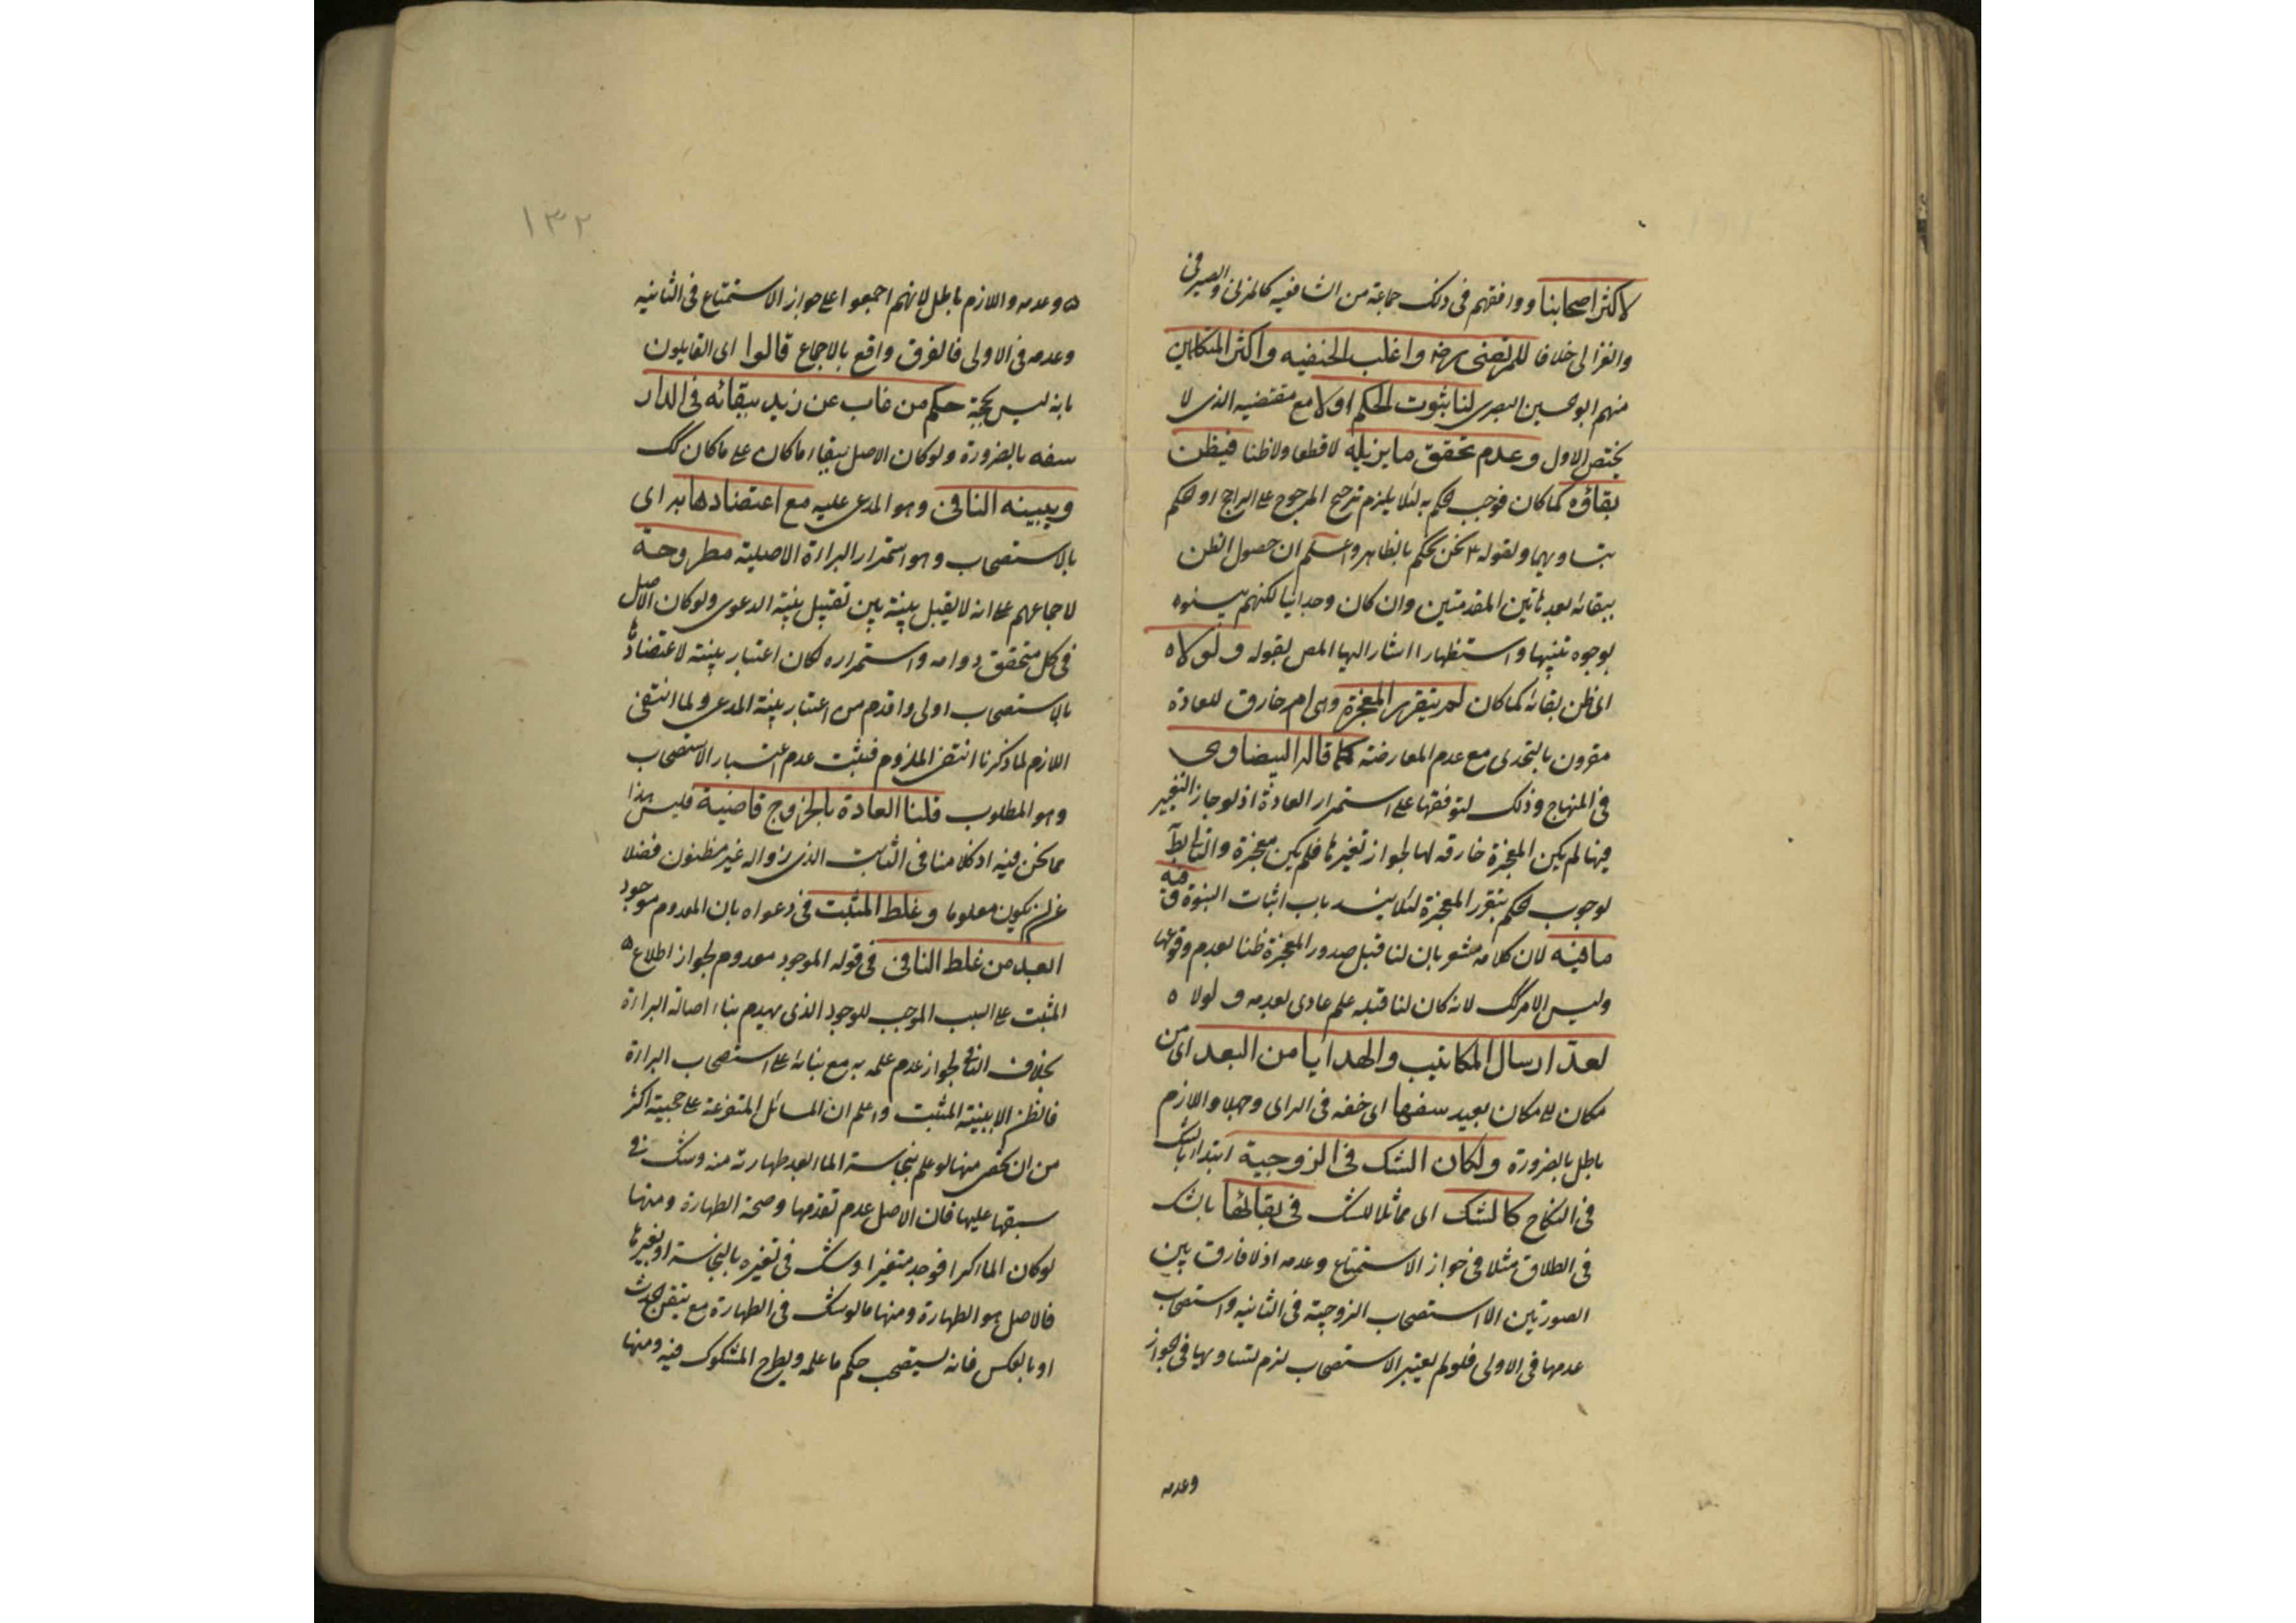 لاكثر اصحابنا ووافقهم فى ذلك جماعة من الشافعيه كالمزنى والصيرفى
والغزالى خلافا للمرتضى رضه واغلب الحنفيه واكثر المتكلمين
منهم ابوالحسين البصرى لنا ثبوت الحكم اولا مع مقتضيه الذى لا
يختص الاول وعدم تحقق ما يزيله لا قطعا ولا ظنا فيظن
بقاؤه كما كان فوجب الحكم به لئلا يلزم ترجيح المرجوح على الراجح او الحكم
بتساويهما ولقوله ع نحن نحكم بالظاهر واعلم ان حصول الظن
ببقائه بعد هاتين المقدمتين وان كان وجدانيا لكنهم بينوه
بوجوه تنبيها واستظهارا اشار اليها المص بقوله ولولاه
اى ظن بقائه كما كان لم يتقرر المعجزة وهى امر خارق للعادة
مقرون بالتحدى مع عدم المعارضة كما قاله البيضاوى
فى المنهاج وذلك لتوقفها على استمرار العادة اذ لو جاز التغير
فيها لم يكن المعجزة خارقه لها لجواز تغيرها فلم يكن معجزة والتالى بط
لوجوب الحكم بتقرر المعجزة لئلا ينسد باب اثبات النبوة وفيه
ما فيه لان كلامه مشعر بان لنا قبل صدور المعجزة ظنا بعدم وقوعها
وليس الامر كك لانه كان لنا قبله علم عادى بعدمه ولولاه
لعد ارسال المكاتيب والهدايا من البعد اى من
مكان الى مكان بعيد سفها اى خفه فى الراى وجهلا واللازم
باطل بالضرورة ولكان الشك فى الزوجية ابتداء بالشك
فى النكاح كالشك اى مماثلا للشك فى بقائها بالشك
فى الطلاق مثلا فى جواز الاستمتاع وعدمه اذ لا فارق بين
الصورتين الا استصحاب الزوجية فى الثانيه واستصحاب
عدمها فى الاولى فلو لم يعتبر الاستصحاب لزم تساويهما فى الجواز
وعدمه
١٣٢
وعدمه واللازم باطل لانهم اجمعوا على جواز الاستمتاع فى الثانيه
وعدمه فى الاولى فالفرق واقع بالاجماع قالوا اى القايلون
بانه ليس بحجة حكم من غاب عن زيد ببقائه فى الدار
سفه بالضرورة ولو كان الاصل بقاء ما كان على ما كان كك
وبينه النافى وهو المدعى عليه مع اعتضادها به اى
بالاستصحاب وهو استمرار البراءة الاصلية مطروحة
لاجماعهم على انه لا يقبل بينة بين تقبل بينة الدعوى ولو كان الاصل
فى كل متحقق دوامه واستمراره لكان اعتبار بينته لاعتضادها
بالاستصحاب اولى واقدم من اعتبار بينة المدعى ولما انتفى
اللازم لما ذكرنا انتفى الملزوم فثبت عدم اعتبار الاستصحاب
وهو المطلوب قلنا العادة بالخروج قاضية فليس هذا
مما نحن فيه اذ كلامنا فى الثابت الذى زواله غير مظنون فضلا
عن ان يكون معلوما وغلط المثبت فى دعواه بان المعدوم موجود
ابعد من غلط النافى فى قوله الموجود معدوم لجواز اطلاع
المثبت على السبب الموجب للوجود الذى يهدم بناء اصالة البراءة
بخلاف النافى لجواز عدم علمه به مع بنائه على استصحاب البراءة
فالظن الا ببينة المثبت واعلم ان المسائل المتفرعة على حجيته اكثر
من ان تحصى منها لو علم بنجاسة الماء بعد طهارته منه وشك فى
سبقها عليها فان الاصل عدم تقدمها وصحة الطهارة ومنها
لو كان الماء كرا فوجد متغيرا وشك فى تغيره بالنجاسة او بغيرها
فالاصل هو الطهارة ومنها ما لو شك فى الطهارة مع تيقن الحدث
او بالعكس فانه يستصحب حكم ما علمه ويطرح المشكوك فيه ومنها